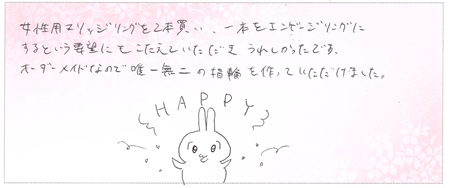 女性用マリッジリングを2本買い、一本をエンゲージリングに
するという要望にもこたえていただき うれしかったです。
オーダーメイドなので唯一無二の指輪を作っていただけました。
HAPPY